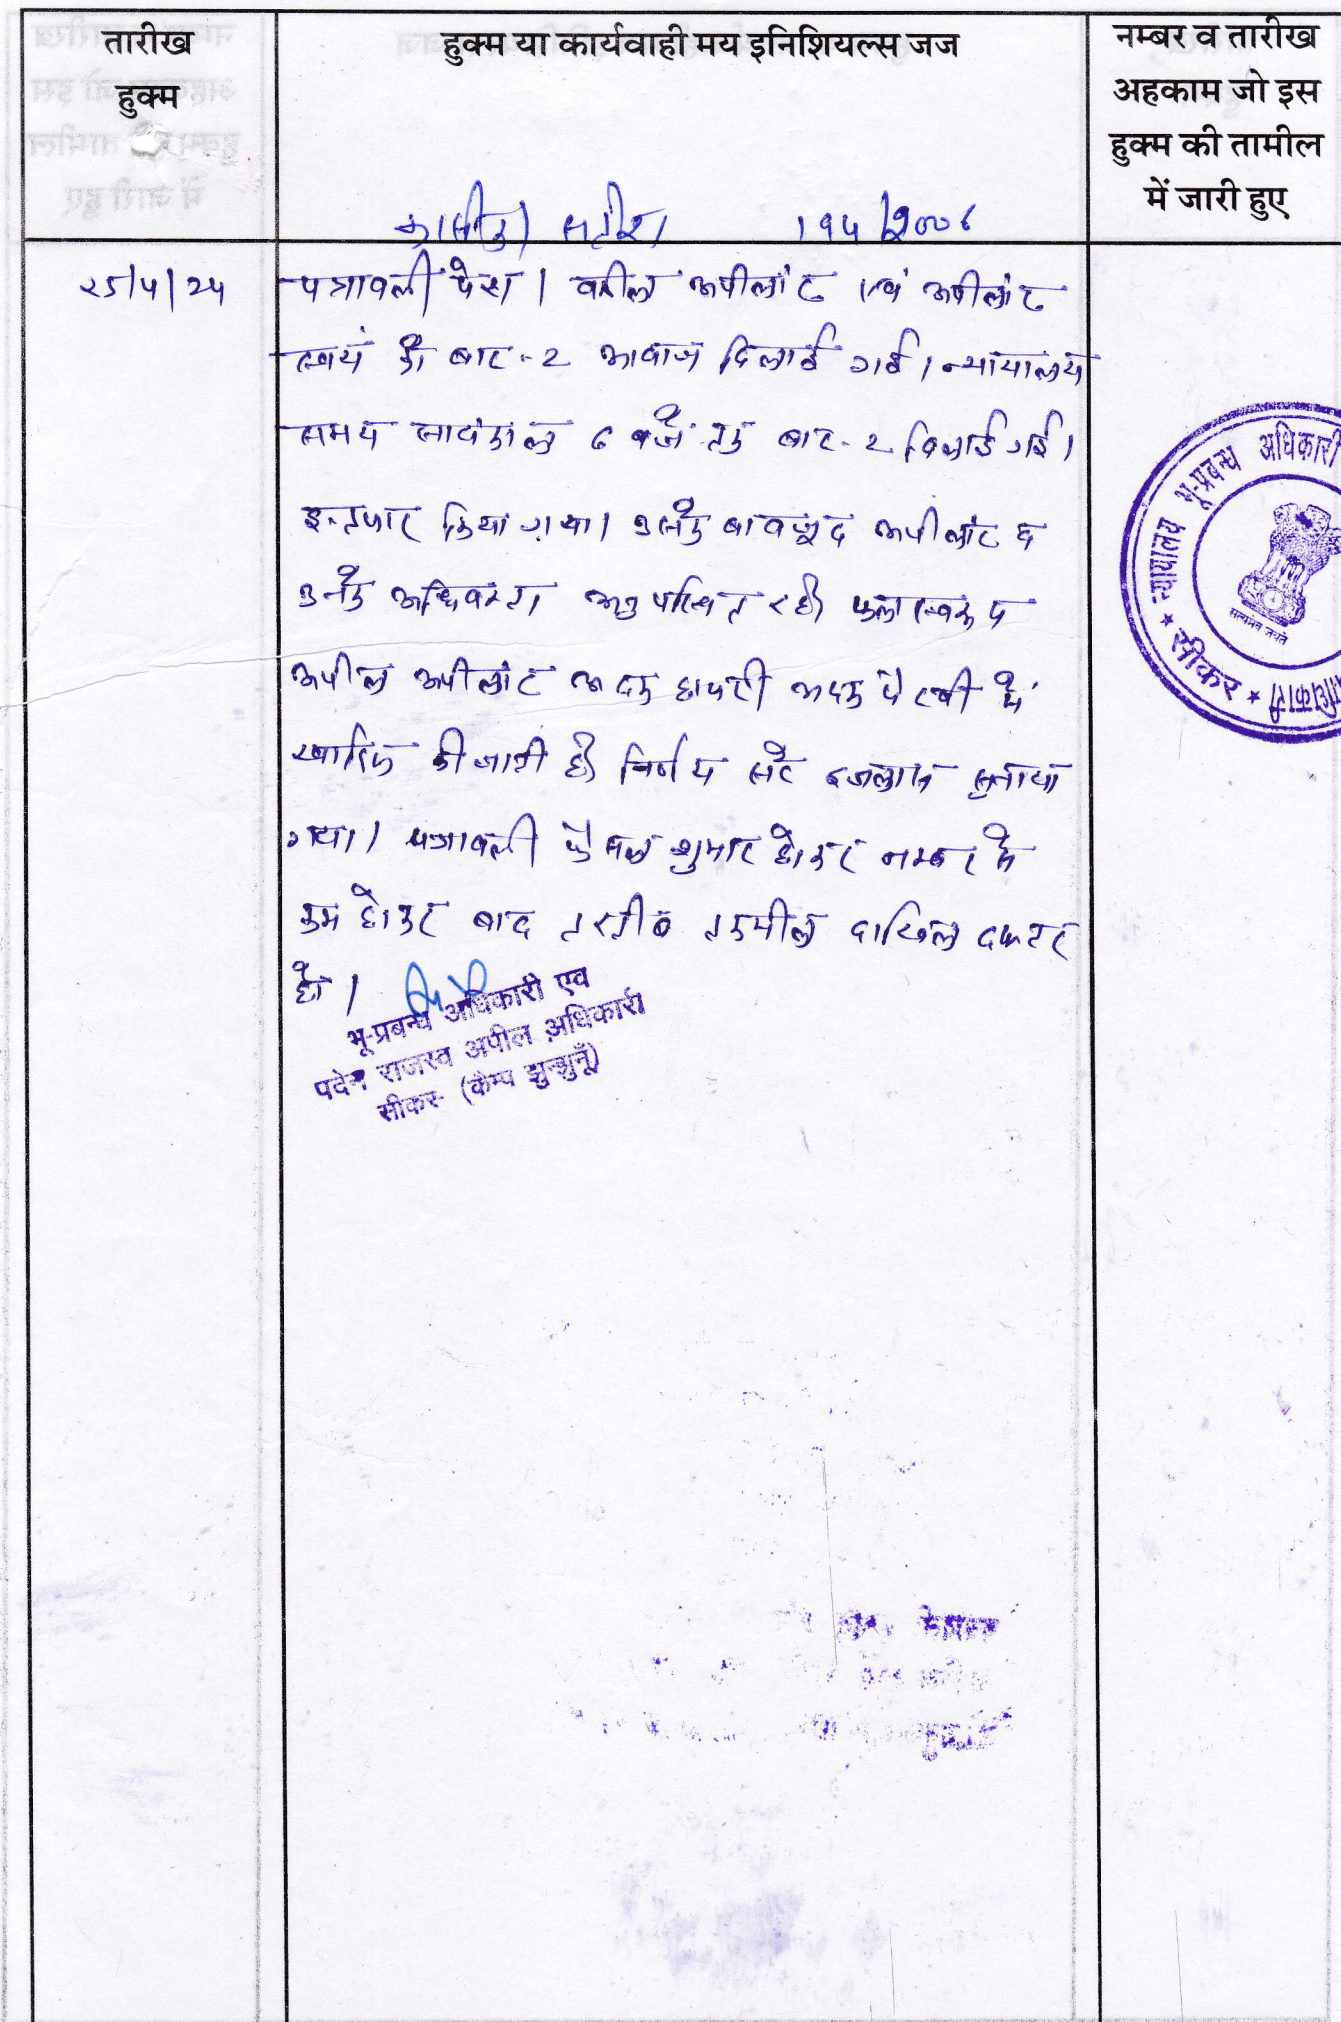 तारीख
हुक्म
हुक्म या कार्यवाही मय इनिशियल्स जज
नम्बर व तारीख
अहकाम जो इस
हुक्म की तामील
में जारी हुए
पत्रावली पेश। वकील अपीलांट एवं अपीलांट
स्वयं को बार-२ आवाज दिलाई गई। न्यायालय
समय सायंकाल ६ बजे तक बार-२ दिलाई गई।
इन्तजार किया गया। उसके बावजूद अपीलांट व
उनके अधिवक्ता अनुपस्थित रहे। फलस्वरूप
अपील अपीलांट अदम हाजरी अदम पैरवी में
खारिज की जाती है। निर्णय सरे इजलास सुनाया
गया। पत्रावली फैसल शुमार होकर नम्बर से
कम होकर बाद तरतीब तकमील दाखिल दफ्तर
हो।
भू-प्रबन्ध अधिकारी एव
पदेन राजस्व अपील अधिकारी
सीकर (कैम्प झुन्झुनूँ)
न्यायालय भू-प्रबन्ध अधिकारी
सीकर
सत्यमेव जयते